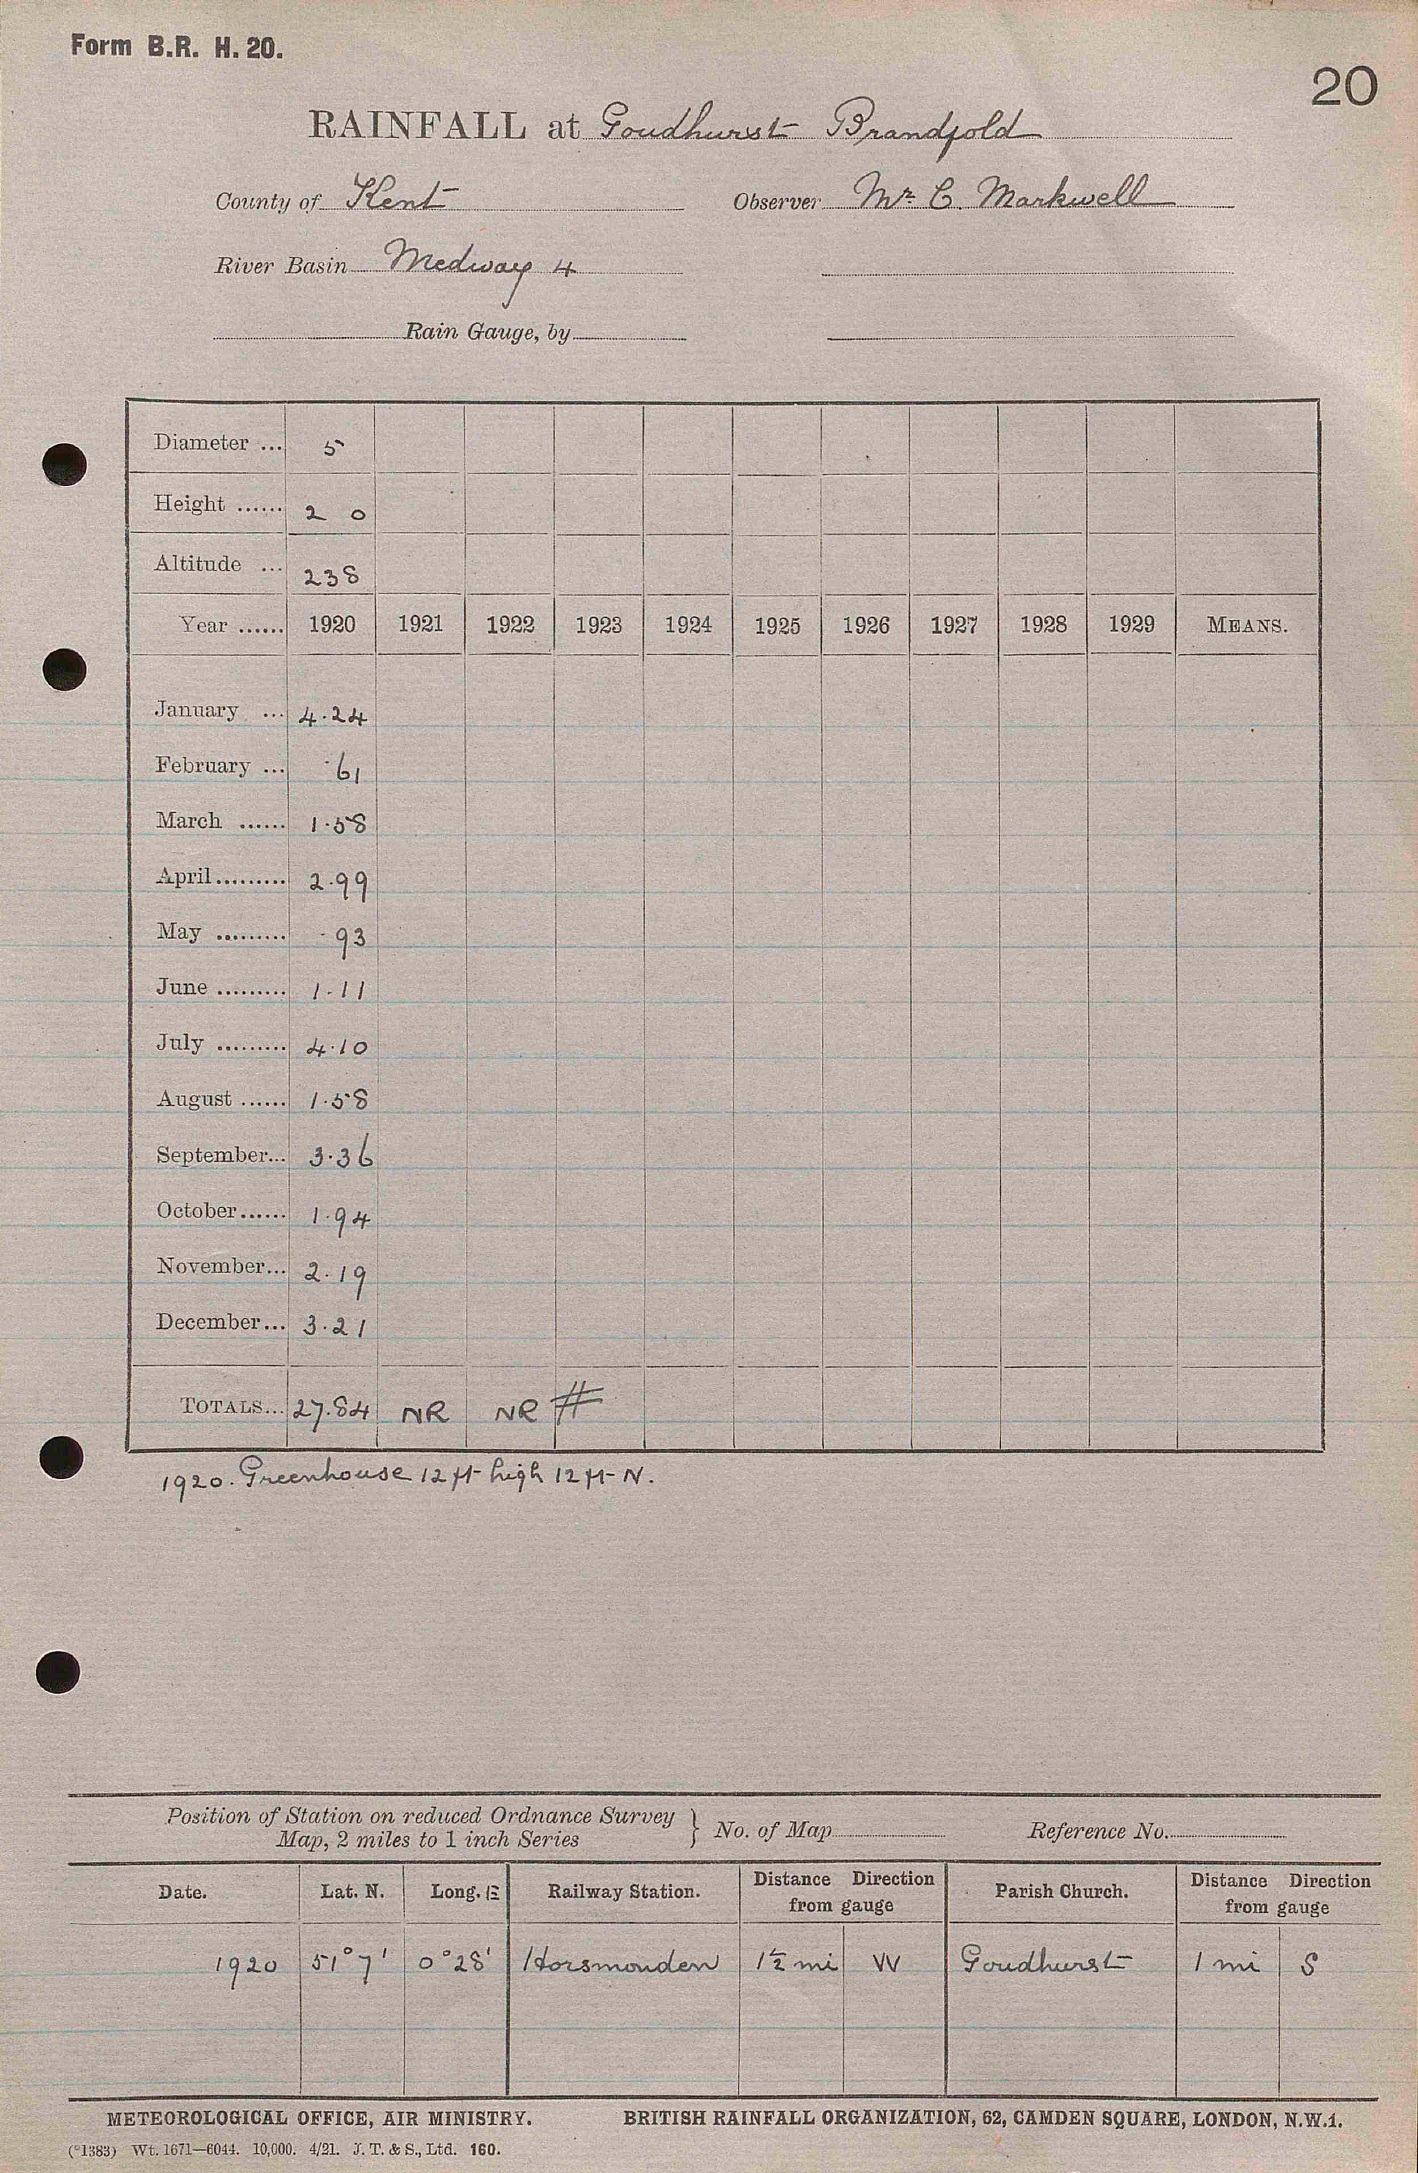 Form B.R. H. 20.
20
RAINFALL at Goudhurst Brandfold
County of Kent Observer Mr. C. Markwell
River Basin Medway 4
Rain Gauge, by
Diameter ... 5
Height ...... 2 0
Altitude ... 238
Year ...... 1920 1921 1922 1923 1924 1925 1926 1927 1928 1929 MEANS.
January ... 4.24
February ... .61
March ...... 1.58
April......... 2.99
May ......... .93
June ......... 1.11
July ......... 4.10
August ...... 1.58
September... 3.36
October...... 1.94
November... 2.19
December... 3.21
TOTALS... 27.84 NR NR #
1920. Greenhouse 12 ft high 12 ft N.
Position of Station on reduced Ordnance Survey
Map, 2 miles to 1 inch Series } No. of Map Reference No.
Date. Lat. N. Long. E Railway Station. Distance Direction from gauge Parish Church. Distance Direction from gauge
1920 51° 7' 0° 28' Horsmonden 1½ mi W Goudhurst 1 mi S
METEOROLOGICAL OFFICE, AIR MINISTRY. BRITISH RAINFALL ORGANIZATION, 62, CAMDEN SQUARE, LONDON, N.W.1.
(*1383) Wt. 1671—6044. 10,000. 4/21. J. T. & S., Ltd. 160.